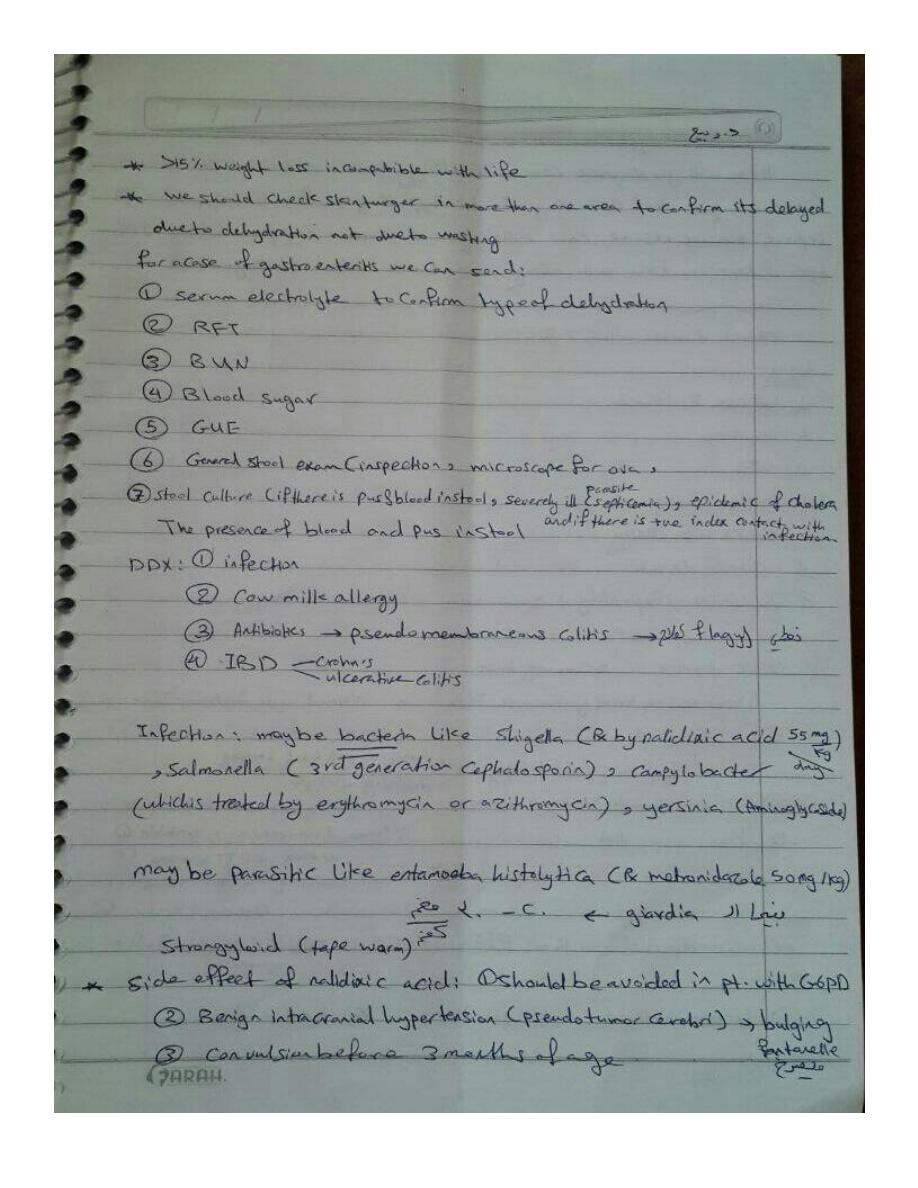 د. ربيع
* >15% weight loss incompatible with life
* we should check skin turger in more than one area to confirm its delayed
due to dehydration not due to wasting
for a case of gastroenteritis we can send:
① serum electrolyte to confirm type of dehydration
② RFT
③ BUN
④ Blood sugar
⑤ GUE
⑥ General stool exam (inspection, microscope for ova,
parasite
⑦ stool culture (if there is pus & blood in stool, severely ill (septicemia), epidemic of cholera
and if there is +ve index contact with
infection
The presence of blood and pus in stool
DDX: ① infection
② Cow milk allergy
③ Antibiotics → pseudomembraneous colitis → flagyl نعطي
④ IBD – crohn's
ulcerative colitis
Infection: may be bacteria like shigella (R by nalidixic acid 55 mg/kg/day)
, salmonella (3rd generation cephalosporin), campylobacter
(which is treated by erythromycin or azithromycin), yersinia (Aminoglycoside)
may be parasitic like entamoeba histolytica (R metronidazole 50mg/kg)
بينما ال giardia ←
ملغم
كغم
Strongyloid (tape warm)
* Side effect of nalidixic acid: ① should be avoided in pt. with G6PD
② Benign intracranial hypertension (pseudotumor cerebri) → bulging
fontanelle
③ Convulsion before 3 months of age
FARAH.